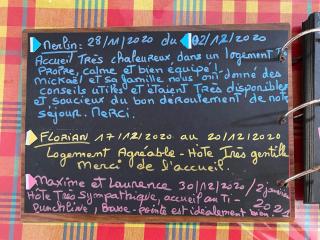 Merlin: 28/11/2020 du 02/12/2020
Accueil Très chaleureux dans un logement Très
Propre, calme et bien équipé!
Mickaël et sa famille nous ont donné des
conseils utiles et étaient Très disponibles
et soucieux du bon déroulement de notre
séjour. Merci.
Florian 17/12/2020 au 20/12/2020
Logement Agréable - Hôte Très gentille
Merci de l'accueil.
Maxime et Laurence 30/12/2020/2 janvier
2021
Hôte Très Sympathique, accueil au Ti-
punch Live, Basse-pointe est idéalement bien